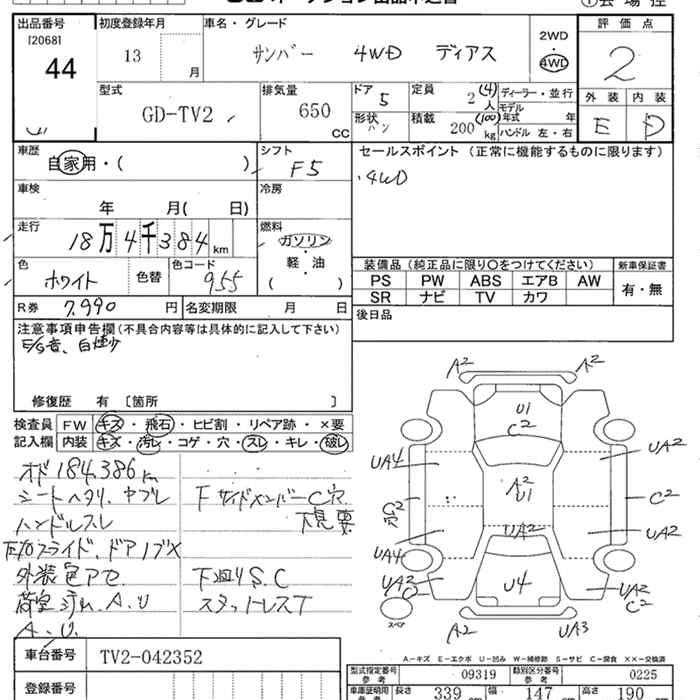 出品番号 初度登録年月 車名・グレード 2WD 評価点
[2068] 13 月 サンバー 4WD ディアス 4WD 2
44
型式 排気量 ドア 5 定員 2(4)人 ディーラー・並行 外装 内装
GD-TV2 650 CC 形状 バン 積載 200(100)kg モデル年式 年 E D
ハンドル 左・右
車歴 自家用・( ) シフト F5 セールスポイント (正常に機能するものに限ります)
車検 年 月( 日) 冷房 ・4WD
走行 18万4千384km 燃料 ガソリン・軽・油 ( )
色 ホワイト 色替 色コード 955 装備品(純正品に限り○をつけてください) 新車保証書
PS PW ABS エアB AW 有・無
R券 7,990 円 名変期限 月 日 SR ナビ TV カワ
後日品
注意事項申告欄(不具合内容等は具体的に記入して下さい)
E/S音、白煙少
修復歴 有 [箇所 ]
検査員 FW キズ・飛石・ヒビ割・リペア跡・×要
記入欄 内装 キズ・汚レ・コゲ・穴・スレ・キレ・破レ
オド184,386km
シートヘタリ、ヤブレ FサイドメンバーC穴
ハンドルスレ 下見要
スライド、ドアノブ×
外装色アセ 下廻りS、C
荷室汚れ、A、U スタットレスT
A、U、
A2 A2
U1
C2
UA4 UA2
A2
U1
C2 穴 C2
UA2 UA2
UA4
UA2 C2 U4 UA2
C2
スペア
A2 UA3
A-キズ E-エクボ U-凹み W-補修跡 S-サビ C-腐食 ××-交換済
車台番号 TV2-042352
型式指定番号 参考 09319 類別区分番号 参考 0225
登録番号 車庫証明用 参考 長さ 339 cm 幅 147 cm 高さ 190 cm